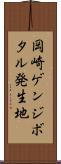 岡崎ゲンジボ
タル発生地